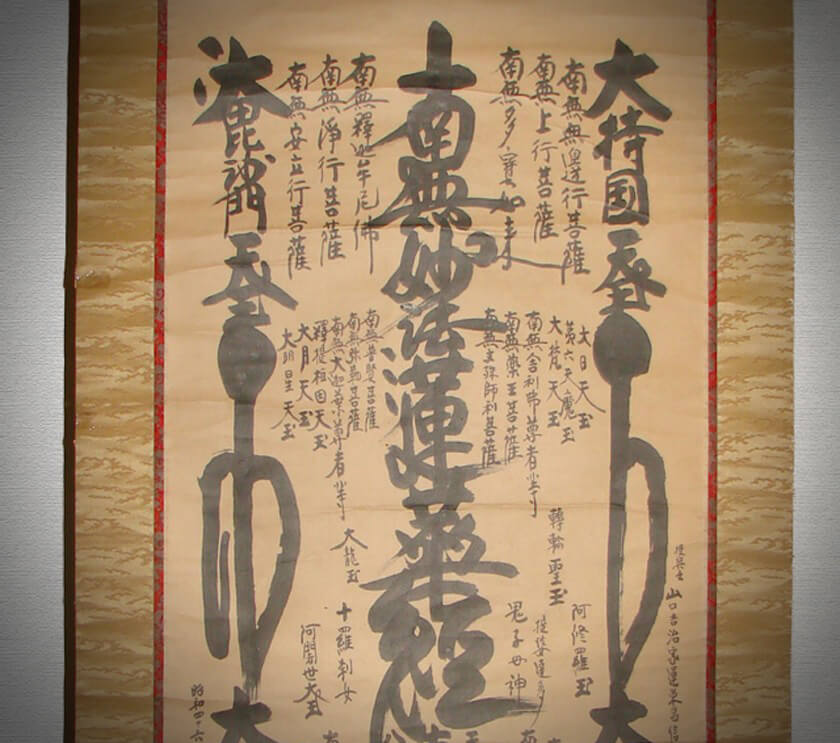 大持国天王
南無無邊行菩薩
南無上行菩薩
南無多宝如来
南無妙法蓮華経
南無釋迦牟尼佛
南無淨行菩薩
南無安立行菩薩
大毘沙門天王
大日天王
第六天魔王
大梵天王
南無舎利弗尊者等
南無薬王菩薩
南無文殊師利菩薩
南無普賢菩薩
南無弥勒菩薩
南無大迦葉尊者等
釋提桓因天王
大月天王
大明星天王
轉輪聖王
大龍王
阿修羅王
提婆達多
鬼子母神
十羅刹女
阿闍世大王
授与之
山口吉治家運栄昌
昭和四十六
大
南
南
大